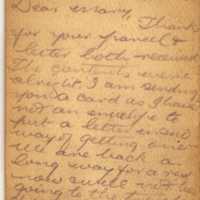 Dear Mary, Thanks
for your parcel &
letter both received
The contents were
alright. I am sending
you a card as I have
not an envelope to
put a letter in and no
way of getting one
we are back a
long way for a rest
now and will not be
going to the